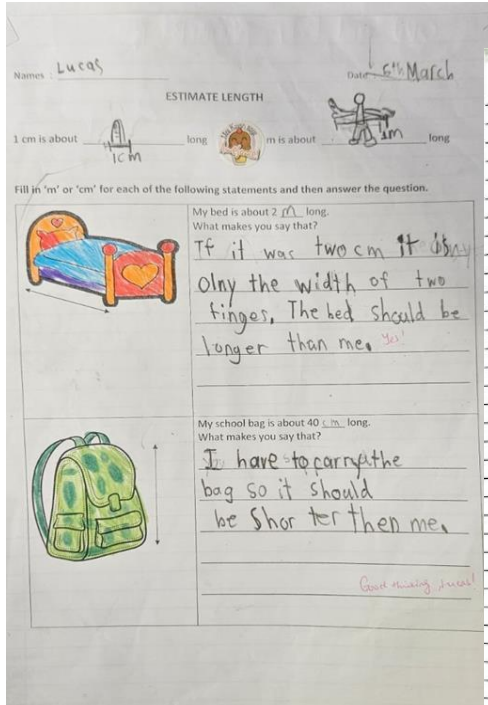 Names : Lucas
Date: 6th March
ESTIMATE LENGTH
1 cm is about long m is about long
1cm
1m
Fill in 'm' or 'cm' for each of the following statements and then answer the question.
My bed is about 2 m long.
What makes you say that?
If it was two cm it is
Olny the width of two
finges. The bed should be
longer than me. Yes!
My school bag is about 40 cm long.
What makes you say that?
I have to carry the
bag so it should
be Shor ter then me.
Good thinking, Lucas!